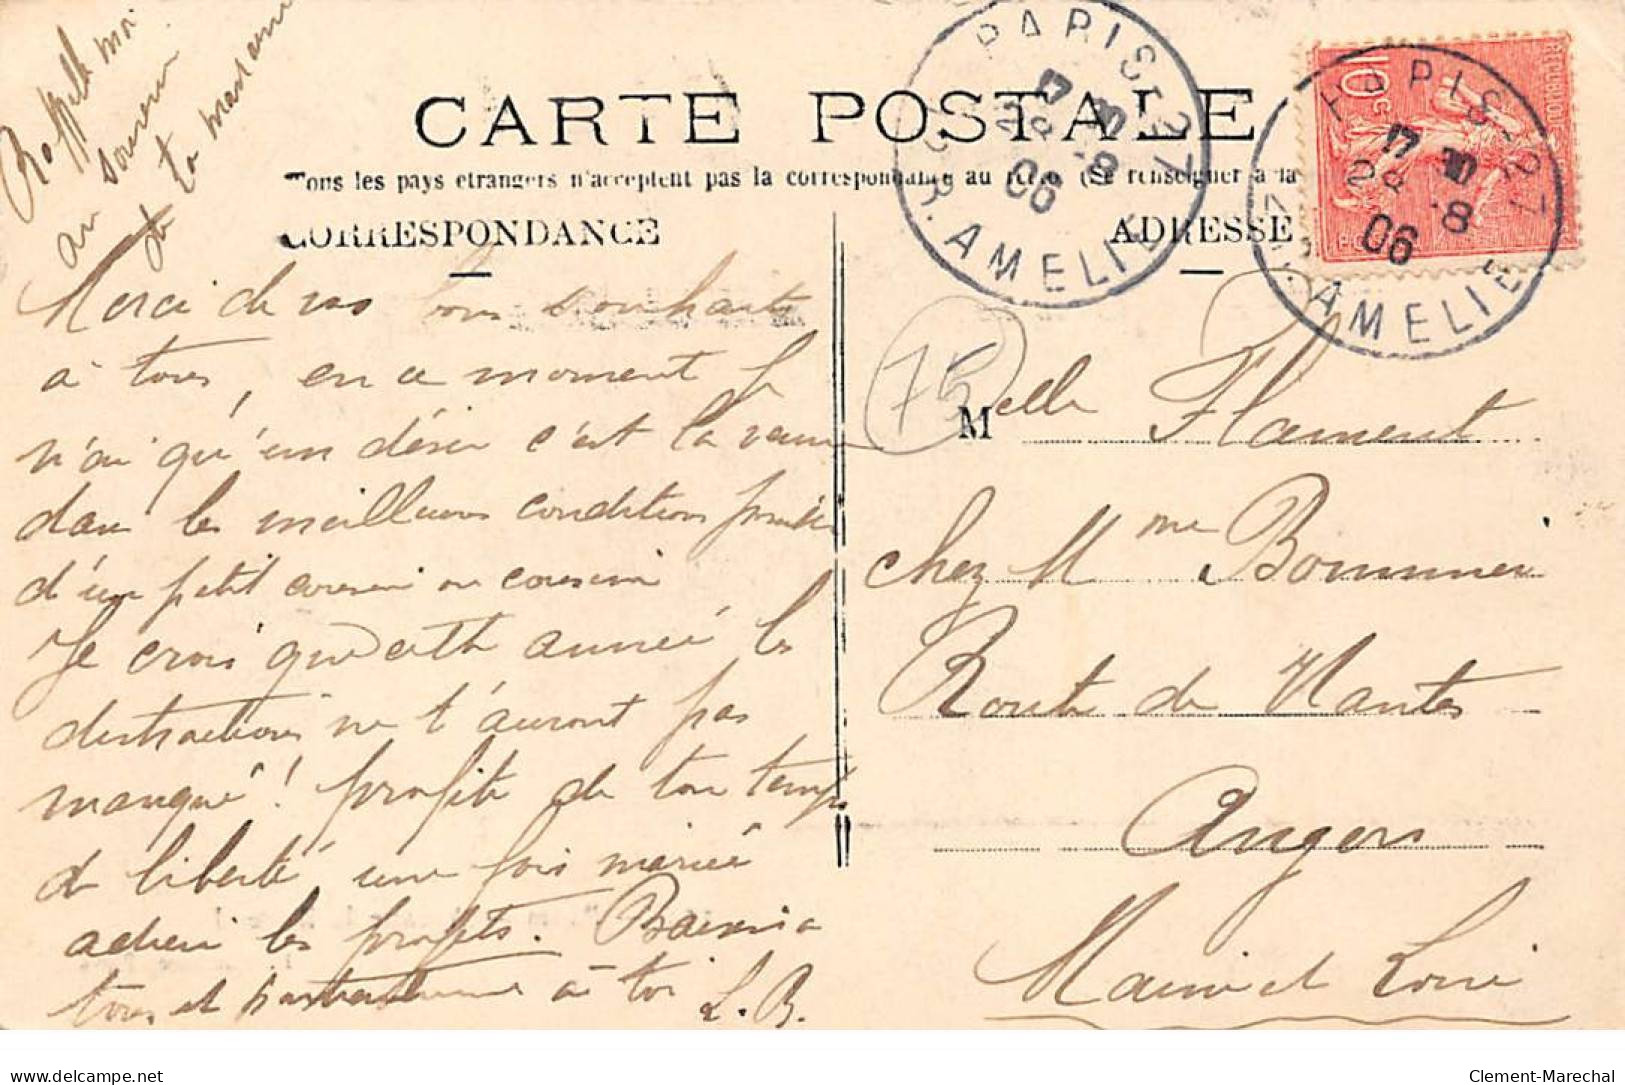 Rappelle moi
au souvenir
de ta marraine
CARTE POSTALE
Tous les pays étrangers n'acceptent pas la correspondance au recto (Se renseigner à la
CORRESPONDANCE
ADRESSE
Merci de vos bons souhaits
à tous, en ce moment je
n'ai qu'un désir c'est la venue
dans les meilleures conditions
d'un petit cousin ou cousine
Je crois que cette année les
distractions ne t'auront pas
manqué! profite de ton temps
de liberté, une fois mariée
adieu les profits. Baisers à
tous et particulièrement à toi
L.B.
75
Melle Flament
chez Mme Bonnnier
Route de Nantes
Angers
Maine et Loire
PARIS-27
17 30
28 -8
06
R. AMELIE
PARIS-27
17 30
28 -8
06
R. AMELIE
10c
REPUBLIQUE
delcampe.net
Clement-Marechal